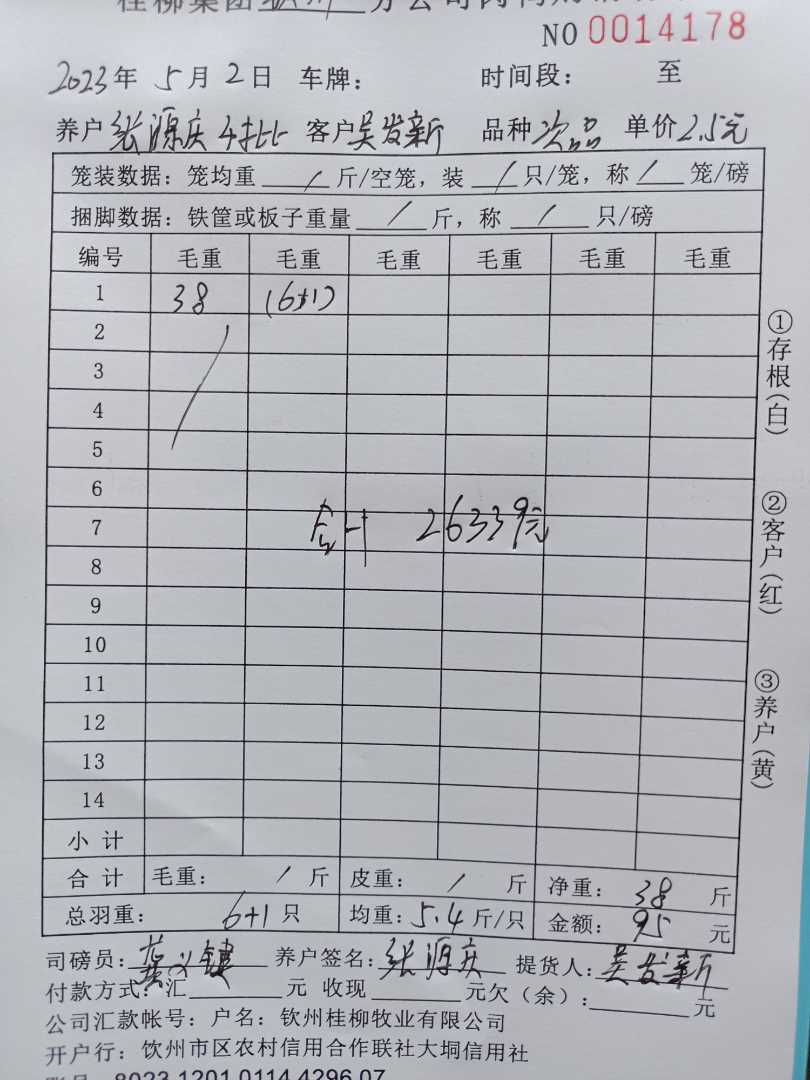 桂柳集团钦州分公司肉
NO 0014178
2023年 5月2日 车牌： 时间段： 至
养户 张源庆 4批 客户吴发新 品种 次品 单价2.5元
笼装数据：笼均重 / 斤/空笼，装 / 只/笼，称 / 笼/磅
捆脚数据：铁筐或板子重量 / 斤，称 / 只/磅
编号 毛重 毛重 毛重 毛重 毛重 毛重
1 38 (6+1)
2
3
4
5
6
7 合计 26339元
8
9
10
11
12
13
14
小计
合计 毛重： / 斤 皮重： / 斤 净重： 38 斤
总羽重： 6+1 只 均重：5.4斤/只 金额： 95 元
司磅员：龚义键 养户签名：张源庆 提货人：吴发新
付款方式：汇 元 收现 元欠（余）： 元
公司汇款帐号：户名：钦州桂柳牧业有限公司
开户行：钦州市区农村信用合作联社大垌信用社
8023 1201 0114 4296 07
①存根（白）
②客户（红）
③养户（黄）